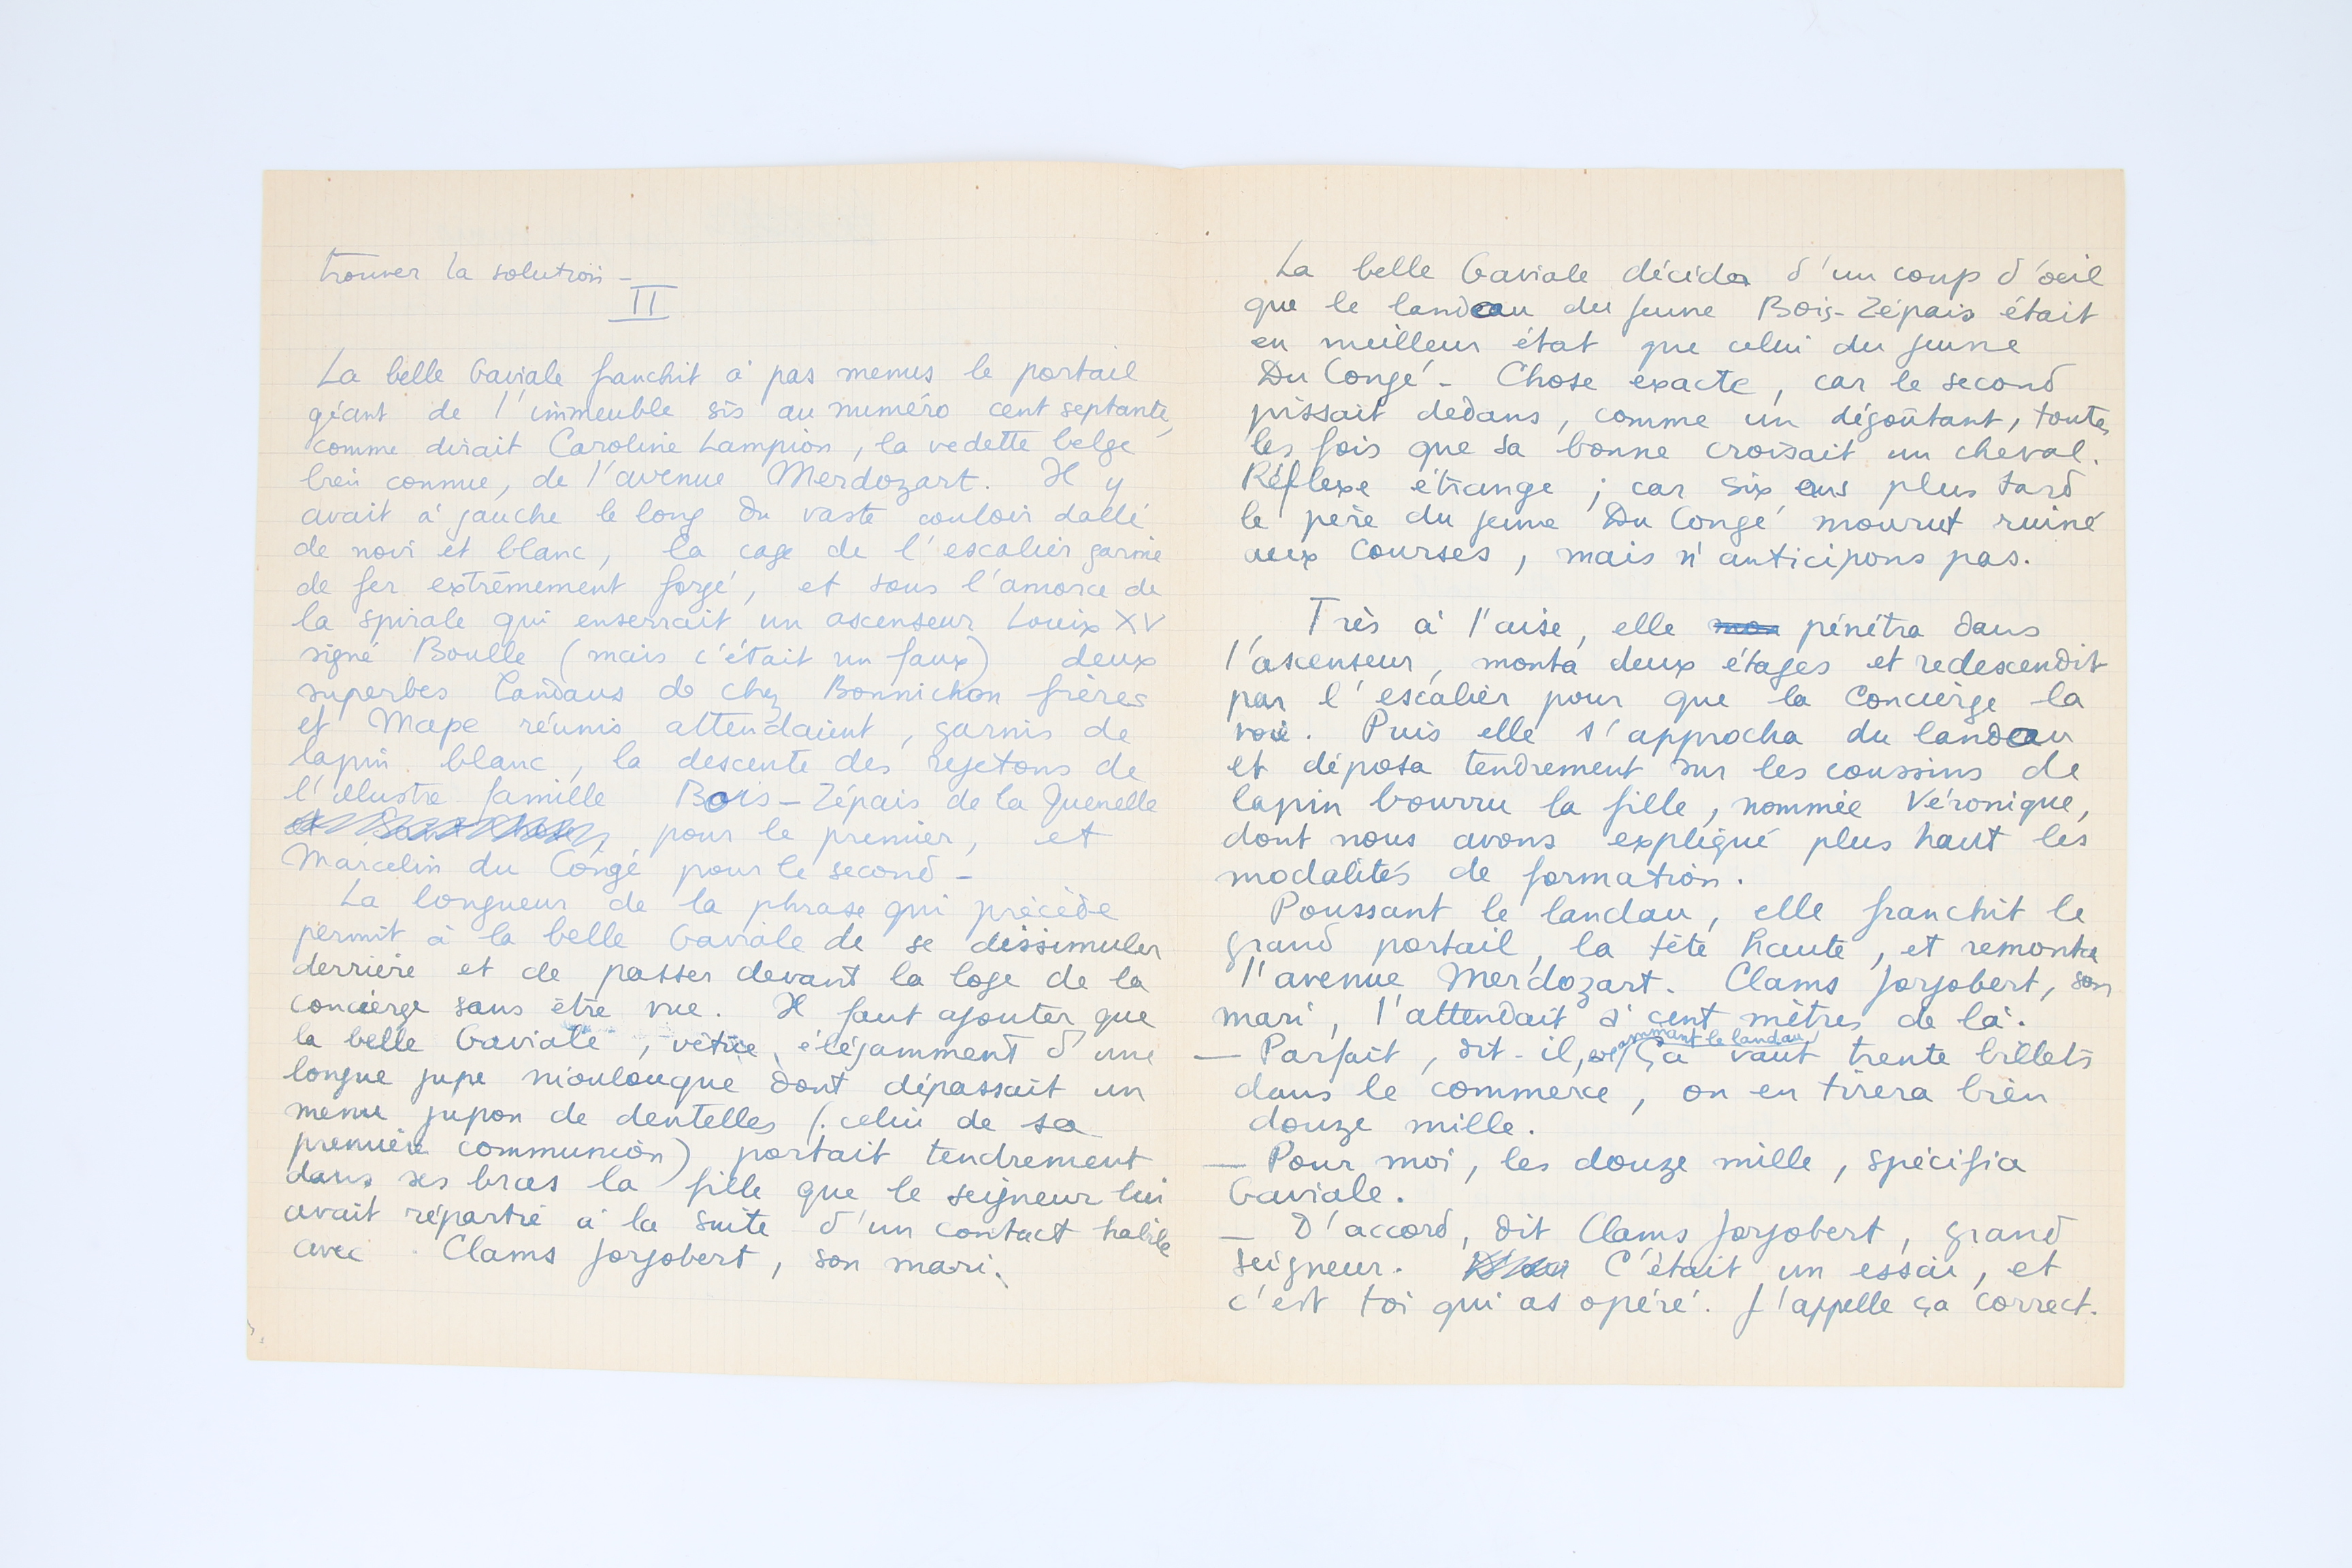 trouver la solution –
II
La belle Gaviale franchit à pas menus le portail
géant de l'immeuble sis au numéro cent septante,
comme dirait Caroline Lampion, la vedette belge
bien connue, de l'avenue Merdozart. Il y
avait à gauche le long du vaste couloir dallé
de noir et blanc, la cage de l'escalier garnie
de fer extrêmement forgé, et sous l'amorce de
la spirale qui enserrait un ascenseur Louix XV
signé Boulle (mais c'était un faux) deux
superbes landaus de chez Bonnichon frères
et Mape réunis attendaient, garnis de
lapin blanc, la descente des rejetons de
l'illustre famille Bois-Zépais de la Quenelle
pour le premier, et
Marcelin du Congé pour le second –
La longueur de la phrase qui précède
permit à la belle Gaviale de se dissimuler
derrière et de passer devant la loge de la
concierge sans être vue. Il faut ajouter que
la belle Gaviale, vêtue élégamment d'une
longue jupe nioulouque dont dépassait un
menu jupon de dentelles (celui de sa
première communion) portait tendrement
dans ses bras la fille que le seigneur lui
avait réparti à la suite d'un contact habile
avec Clams Jorjobert, son mari.
La belle Gaviale décida d'un coup d'œil
que le landeau du jeune Bois-Zépais était
en meilleur état que celui du jeune
Du Congé – Chose exacte, car le second
pissait dedans, comme un dégoûtant, toutes
les fois que sa bonne croisait un cheval.
Réflexe étrange ; car six ans plus tard
le père du jeune Du Congé mourut ruiné
aux Courses, mais n'anticipons pas.
Très à l'aise, elle pénétra dans
l'ascenseur, monta deux étages et redescendit
par l'escalier pour que la Concierge la
voie. Puis elle s'approcha du landeau
et déposa tendrement sur les coussins de
lapin bourru la fille, nommée Véronique,
dont nous avons expliqué plus haut les
modalités de formation.
Poussant le landau, elle franchit le
grand portail, la tête haute, et remonta
l'avenue Merdozart. Clams Jorjobert, son
mari, l'attendait à cent mètres de là.
— Parfait, dit-il, examinant le landau, ça vaut trente billets
dans le commerce, on en tirera bien
douze mille.
— Pour moi, les douze mille, spécifia
Gaviale.
— D'accord, dit Clams Jorjobert, grand
seigneur. C'était un essai, et
c'est toi qui as opéré. J'appelle ça correct.